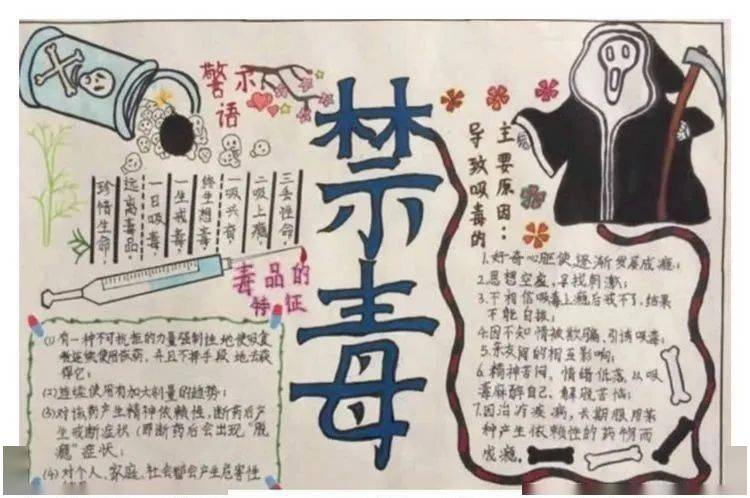 警示
语
珍惜生命,
远离毒品,
一日吸毒,
一生戒毒,
终生想毒,
一吸兴奋,
二吸上瘾,
三丢性命,
禁毒
毒品的
特征
(1)有一种不可抗拒的力量强制性地使吸食
者连续使用该药,并且不择手段地去获
得它;
(2)连续使用有加大剂量的趋势;
(3)对该药产生精神依赖性,断药后产
生戒断症状(即断药后会出现“脱
瘾”症状;
(4)对个人、家庭、社会都会产生危害性
导致吸毒的
主要原因:
1.好奇心驱使逐渐发展成瘾;
2.思想空虚,寻找刺激;
3.不相信吸毒上瘾后戒不了,结果
不能自拔;
4.因不知情被欺骗,引诱吸毒;
5.亲友间的相互影响;
6.精神苦闷,情绪低落,以吸
毒麻醉自己、解脱苦恼;
7.因治疗疾病,长期服用某
种产生依赖性的药物而
成瘾。